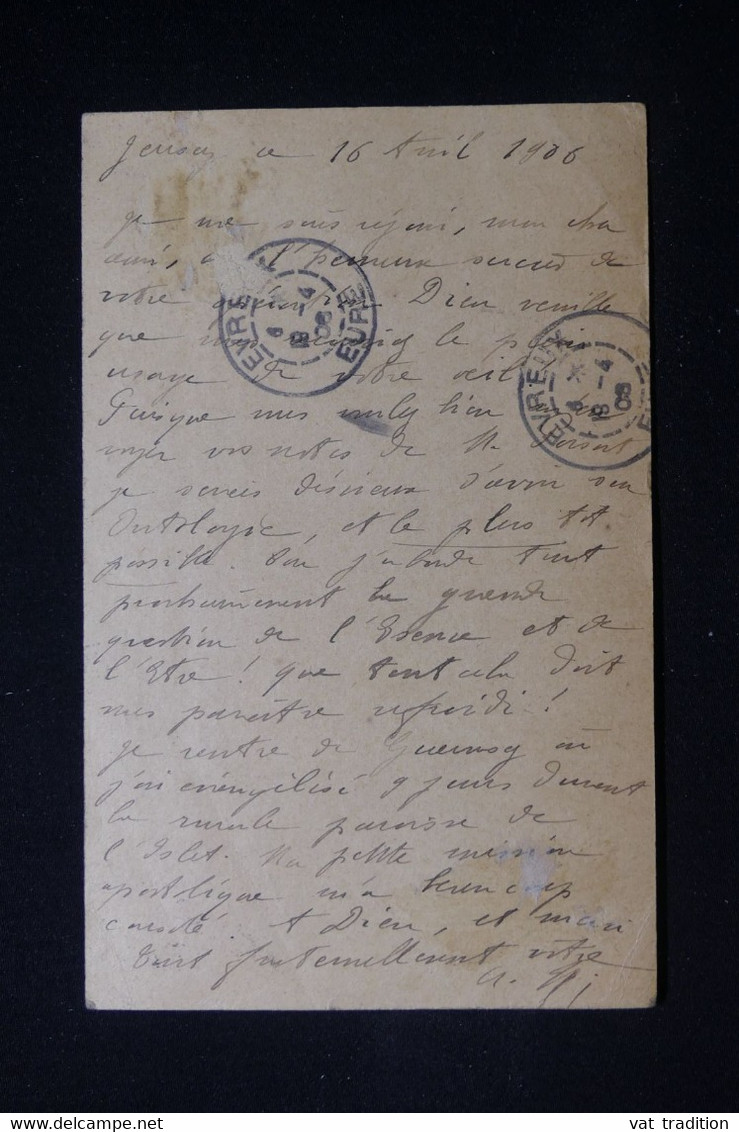 Jersey ce 16 Avril 1906
je me suis réjoui, mon cher
ami, de l'heureux succès de
votre opération. Dieu veuille
que vous le plein
usage de votre œil
Puisque vous voulez bien
vos notes de M.
je serais désireux d'avoir son
Ontologie, et le plus tôt
possible. Car j'aborde tout
prochainement la grande
question de l'Essence et de
l'Etre! que tout cela doit
vous paraître refroidi!
Je rentre de Guernesey où
j'ai évangélisé 9 jours durant
la rurale paroisse de
l'Islet. Ma petite mission
apostolique m'a beaucoup
consolé. A Dieu, et
tout fraternellement vôtre
EVREUX
18 - 4
06
EURE
EVREUX
18 - 4
06
vat tradition